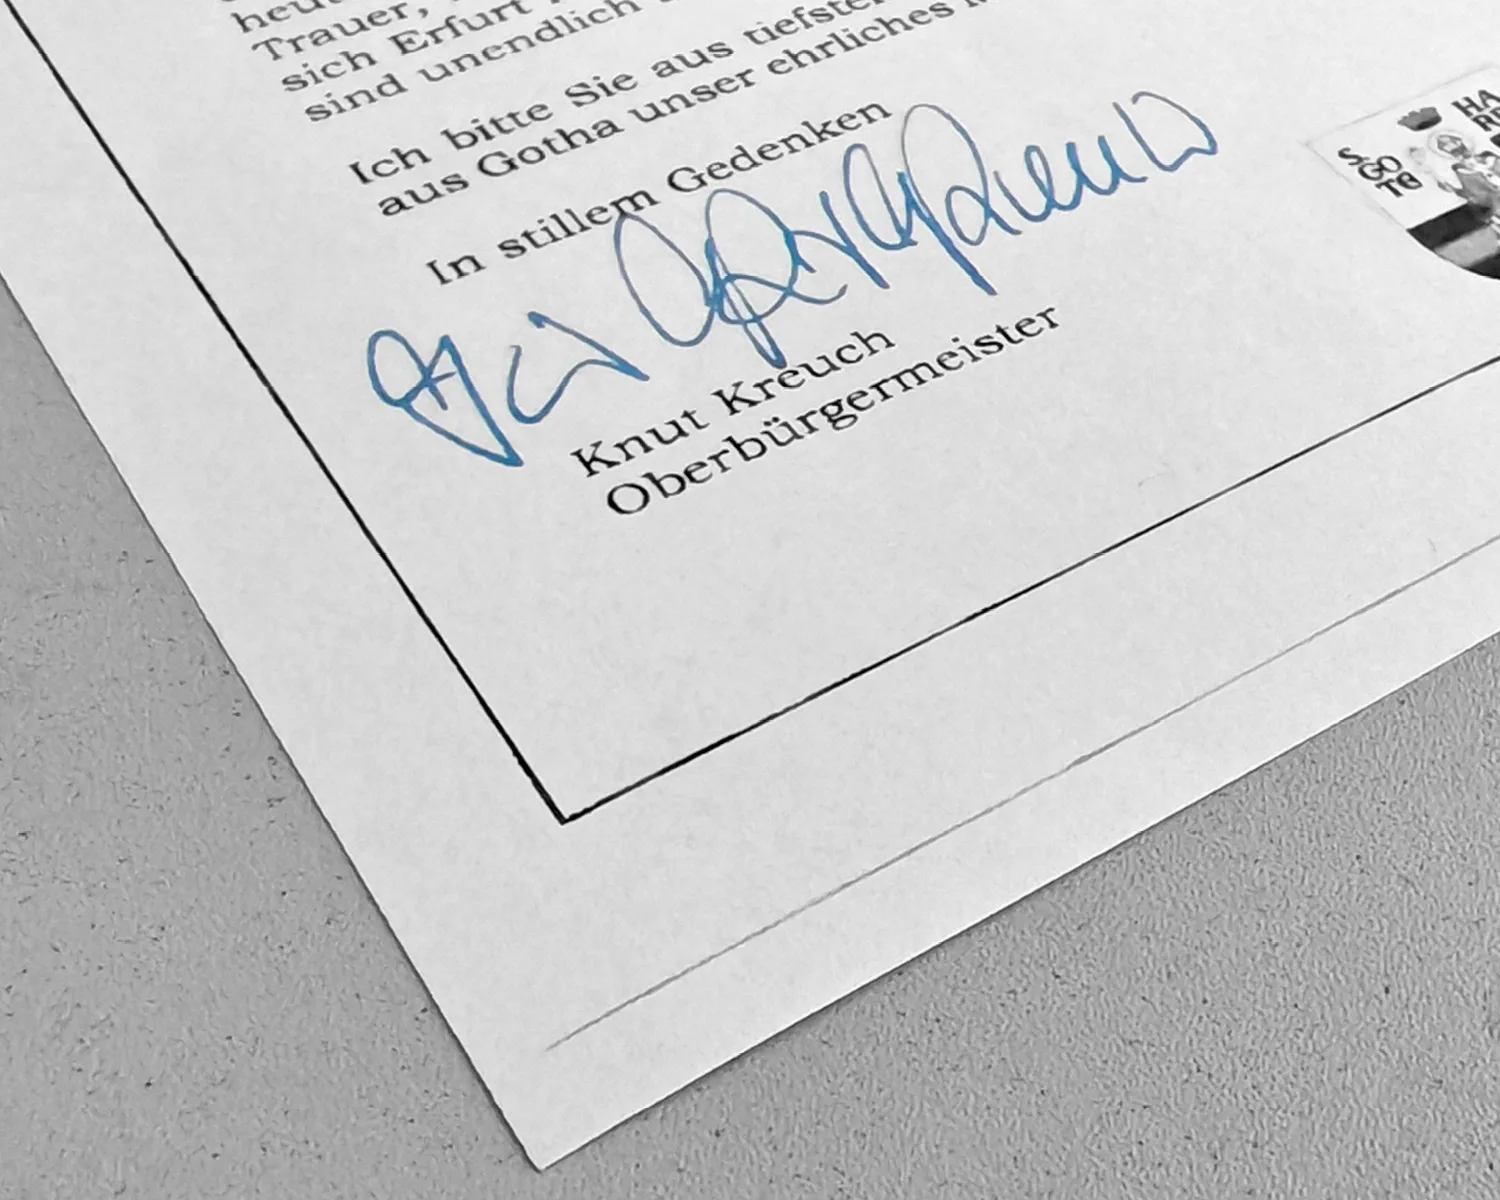 Trauer,
sich Erfurt
sind unendlich
Ich bitte Sie aus
aus Gotha unser ehrliches
In stillem Gedenken
Knut Kreuch
Oberbürgermeister